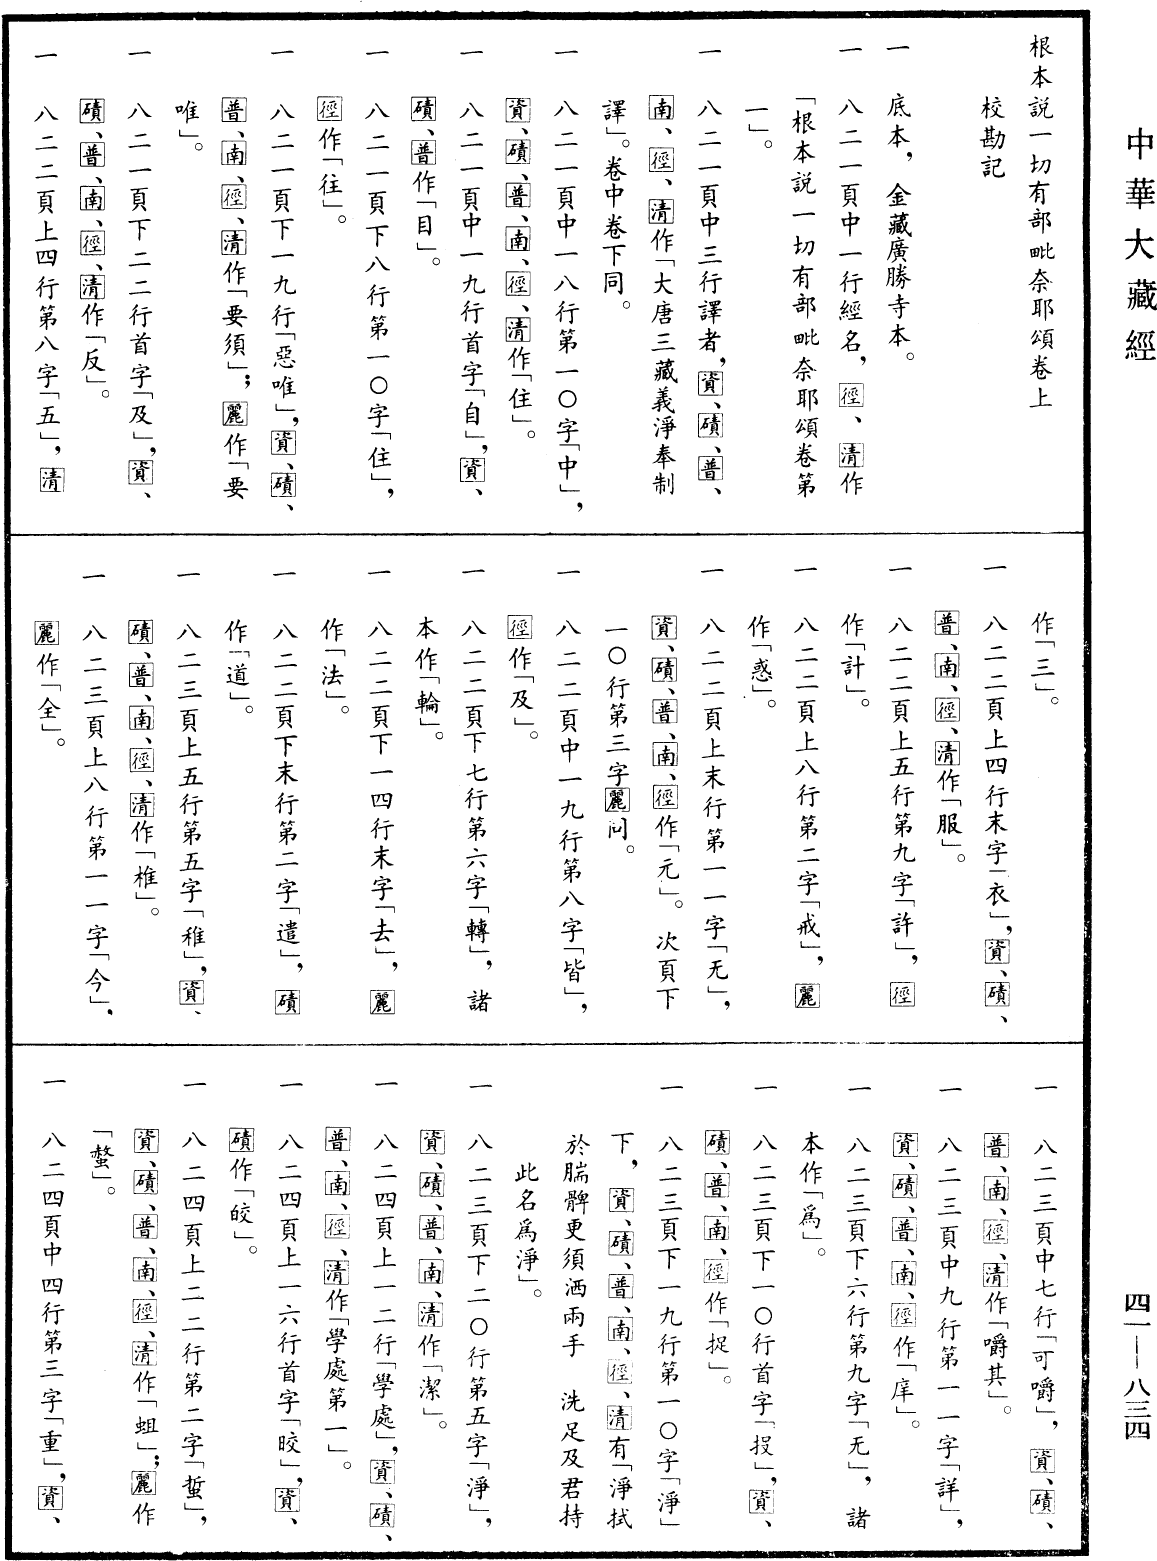 中華大藏經
四一—八三四
根本説一切有部毗奈耶頌卷上
校勘記
一　底本，金藏廣勝寺本。
一　八二一頁中一行經名，徑、清作
「根本説一切有部毗奈耶頌卷第
一」。
一　八二一頁中三行譯者，資、磧、普、
南、徑、清作「大唐三藏義淨奉制
譯」。卷中卷下同。
一　八二一頁中一八行第一〇字「中」，
資、磧、普、南、徑、清作「住」。
一　八二一頁中一九行首字「自」，資、
磧、普作「目」。
一　八二一頁下八行第一〇字「住」，
徑作「往」。
一　八二一頁下一九行「惡唯」，資、磧、
普、南、徑、清作「要須」；麗作「要
唯」。
一　八二一頁下二二行首字「及」，資、
磧、普、南、徑、清作「反」。
一　八二二頁上四行第八字「五」，清
作「三」。
一　八二二頁上四行末字「衣」，資、磧、
普、南、徑、清作「服」。
一　八二二頁上五行第九字「許」，徑
作「計」。
一　八二二頁上八行第二字「戒」，麗
作「惑」。
一　八二二頁上末行第一一字「无」，
資、磧、普、南、徑作「元」。次頁下
一〇行第三字麗同。
一　八二二頁中一九行第八字「皆」，
徑作「及」。
一　八二二頁下七行第六字「轉」，諸
本作「輪」。
一　八二二頁下一四行末字「去」，麗
作「法」。
一　八二二頁下末行第二字「遣」，磧
作「道」。
一　八二三頁上五行第五字「稚」，資、
磧、普、南、徑、清作「椎」。
一　八二三頁上八行第一一字「今」，
麗作「全」。
一　八二三頁中七行「可嚼」，資、磧、
普、南、徑、清作「嚼其」。
一　八二三頁中九行第一一字「詳」，
資、磧、普、南、徑作「庠」。
一　八二三頁下六行第九字「无」，諸
本作「爲」。
一　八二三頁下一〇行首字「投」，資、
磧、普、南、徑作「捉」。
一　八二三頁下一九行第一〇字「淨」
下，資、磧、普、南、徑、清有「淨拭
於腨髀更須洒兩手　洗足及君持
此名爲淨」。
一　八二三頁下二〇行第五字「淨」，
資、磧、普、南、清作「潔」。
一　八二四頁上一二行「學處」，資、磧、
普、南、徑、清作「學處第一」。
一　八二四頁上一六行首字「晈」，資、
磧作「皎」。
一　八二四頁上二二行第二字「蜇」，
資、磧、普、南、徑、清作「蛆」；麗作
「螫」。
一　八二四頁中四行第三字「重」，資、